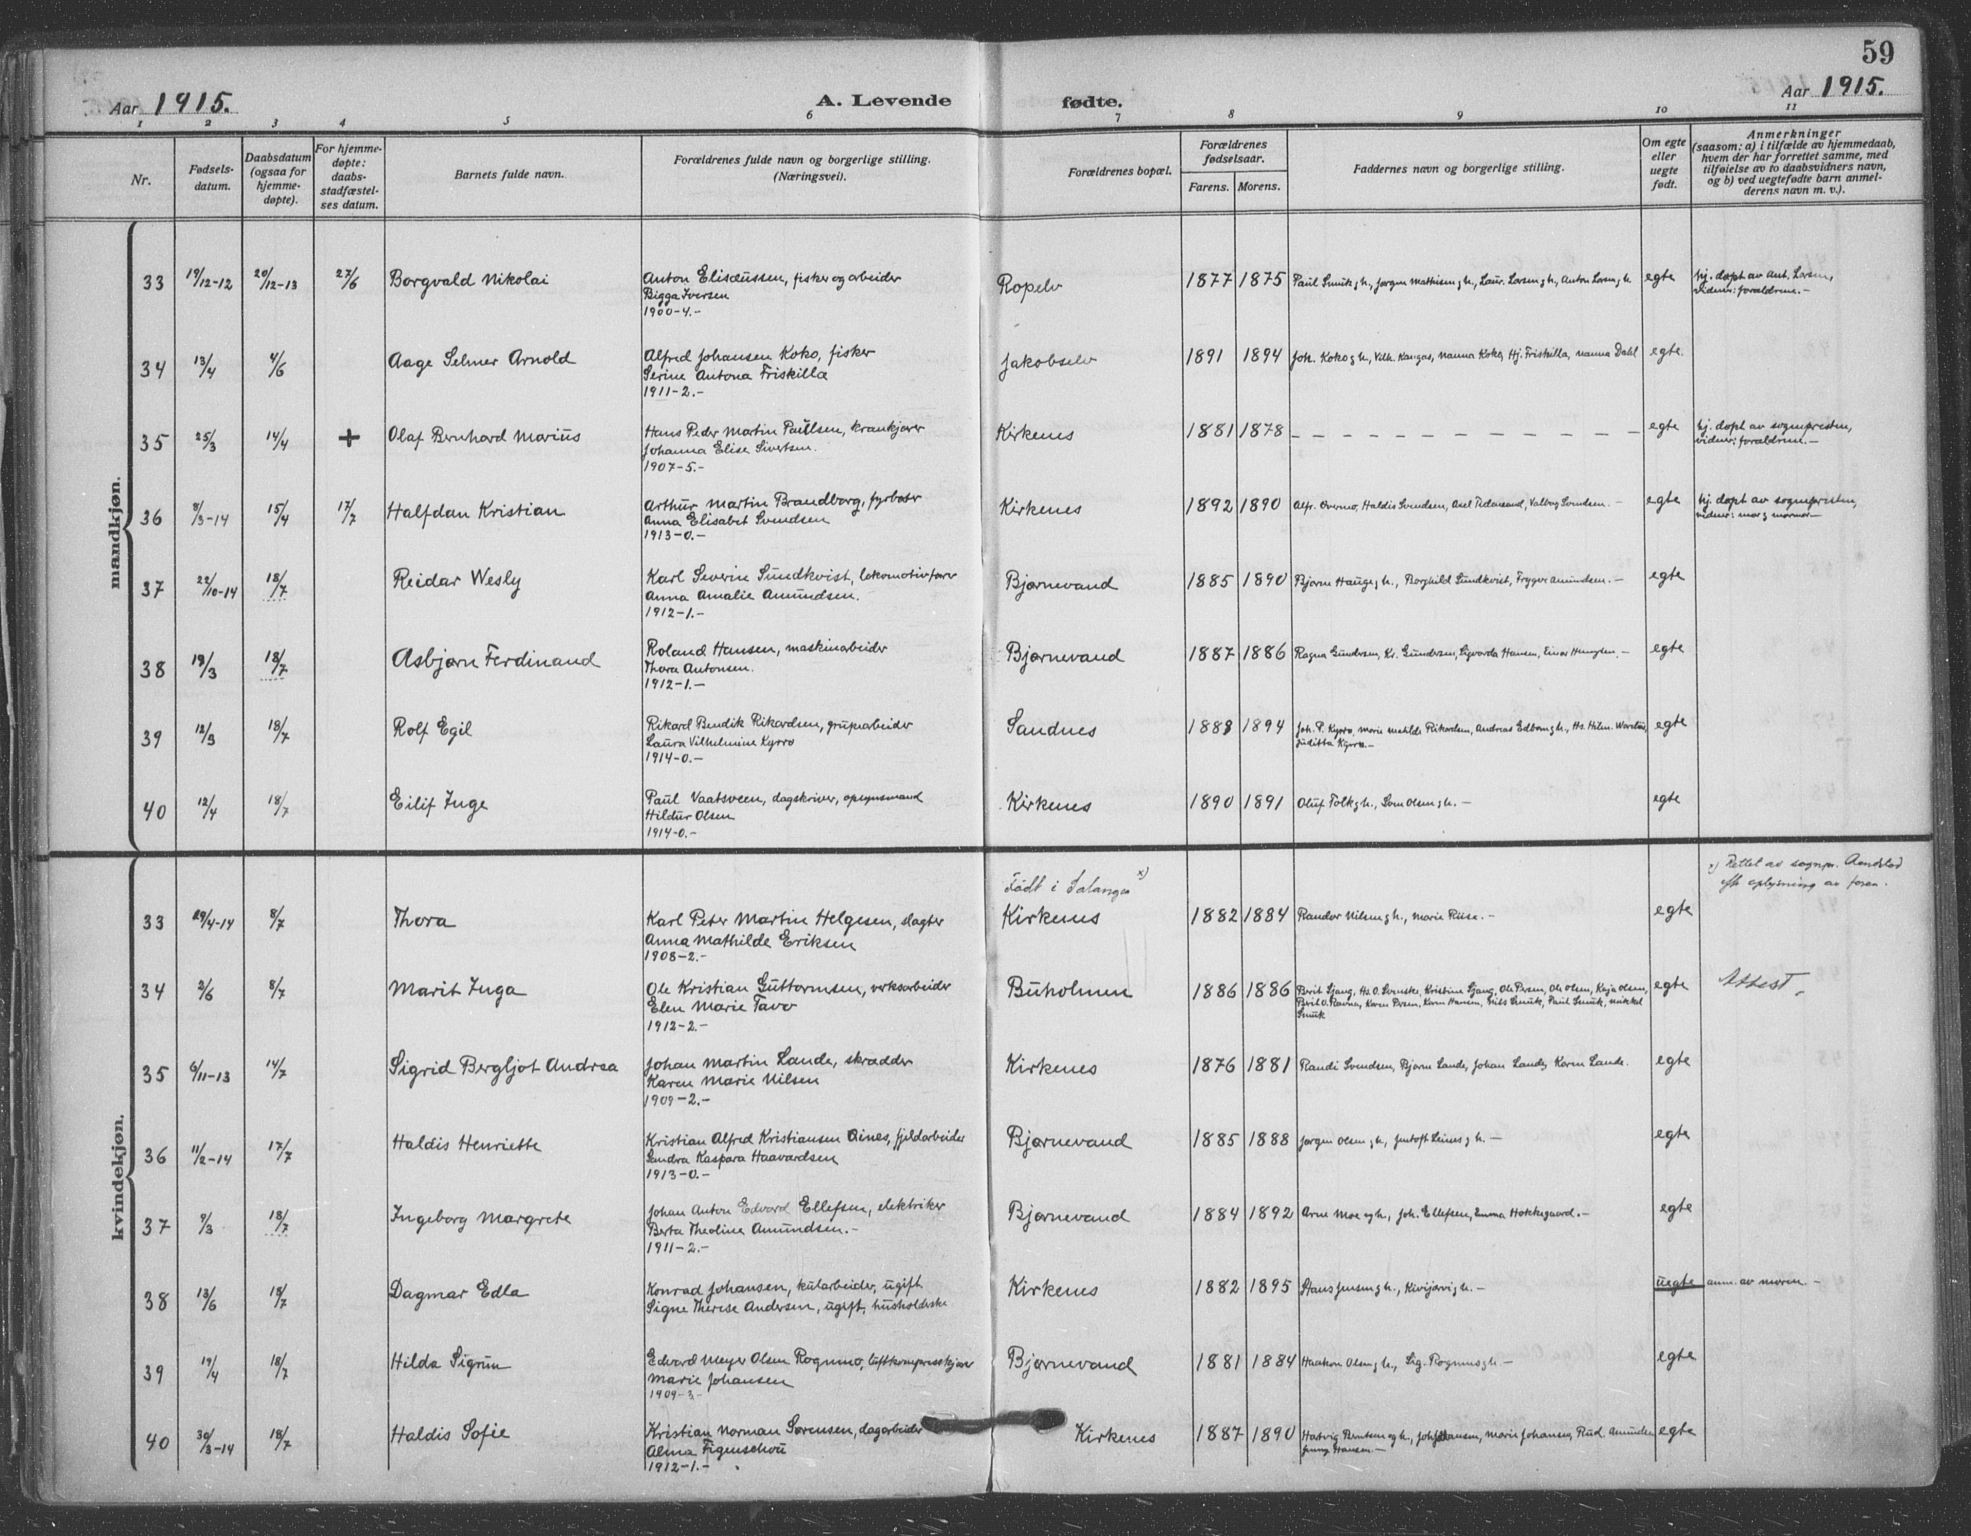 59
Aar 1915.
A. Levende
fødte.
Aar 1915.
1 2 3 4 5 6 7 8 9 10 11
Nr.
Fødsels-
datum.
Daabsdatum
(ogsaa for
hjemme-
døpte).
For hjemme-
døpte:
daabs-
stadfæstel-
ses datum.
Barnets fulde navn.
Forældrenes fulde navn og borgerlige stilling.
(Næringsvei).
Forældrenes bopæl.
Forældrenes
fødselsaar.
Farens. Morens.
Faddernes navn og borgerlige stilling.
Om egte
eller
uegte
født.
Anmerkninger
(saasom: a) i tilfælde av hjemmedaab,
hvem der har forrettet samme, med
tilføielse av to daabsvidners navn,
og b) ved uegtefødte barn anmel-
derens navn m. v.).
mandkjøn.
33 19/12-12 20/12-13 27/6 Borgvald Nikolai Anton Elisæussen, fisker og arbeider Ropelv 1877 1875 Paul Smuk g h., Jørgen Mathisen g h., Laur. Larsen g h., Anton Larsen g h. egte hj. døpt av Ant. Larsen,
Bigga Iversen vidner: forældrene.-
1900-4.-
34 13/4 4/6 Aage Selmer Arnold Alfred Johansen Koko, fisker Jakobselv 1891 1894 Joh. Koko g h., Vilh. Kangas, Nanna Koko, Hj. Friskilla, Nanna Dahl egte.
Serine Antona Friskilla
1911-2.-
35 25/3 14/4 + Olaf Bernhard Marius Hans Peder Martin Paulsen, krankjører Kirkenes 1881 1878 – – – – – – – – egte hj. døpt av sognepresten,
Johanna Elise Sivertsen. vidner: forældrene.-
1907-5.-
36 8/3-14 15/4 17/7 Halfdan Kristian Arthur Martin Brandborg, fyrbøter Kirkenes 1892 1890 Alfr. Overmo, Haldis Svendsen, Axel Tidemand, Valborg Svendsen.- egte hj. døpt av sognepresten,
Anna Elisabet Svendsen vidner: mor g mormor-
1913-0.-
37 22/10-14 18/7 Reidar Wesly Karl Severin Sundkvist, lokomotivfører Bjørnevand 1885 1890 Bjarne Hauge g h., Borghild Sundkvist, Trygve Amundsen.- egte
Anna Amalie Amundsen.
1912-1.-
38 19/3 18/7 Asbjørn Ferdinand Roland Hansen, maskinarbeider Bjørnevand 1887 1886 Ragna Gundersen, Kr. Gundersen, Sigvarda Hansen, Einar .- egte
Thora Antonsen.
1912-1.-
39 12/3 18/7 Rolf Egil Rikard Bendik Rikardsen, grubearbeider Sandnes 1888 1894 Joh. P. Kyrrø, Marie Matilde Rikardsen, Andreas Edbom g h., Hs. Hilm. , egte
Laura Vilhelmine Kyrrø Juditta Kyrrø.-
1914-0.-
40 12/4 18/7 Eilif Inge Paul Vaatsveen, dagskriver, opsynsmand Kirkenes 1890 1891 Oluf Folk g h., Sven Olsen g h.- egte
Hildur Olsen
1914-0.-
kvindekjøn.
Født i Salangen x) x) Rettet av sognepr. Aandstad
eft. oplysning av faren.
33 29/4-14 8/7 Thora Karl Peter Martin Helgesen, slagter Kirkenes 1882 1884 Randor Nilsen g h., Marie Riise.- egte
Anna Mathilde Eriksen
1908-2.-
34 2/6 8/7 Marit Inga Ole Kristian Guttormsen, verksarbeider Buholmen 1886 1886 Berit Sjang, Hs. O. Svenske, Kristine Sjang, Ole Persen, Ole Olsen, Kaja Olsen, egte Attest.
Elen Marie Tavo Berit O. Ravna, Karen Persen, Karen Hansen, Nils Smuk, Paul Smuk, Mikkel
1912-2.- Smuk
35 6/11-13 14/7 Sigrid Bergljot Andrea Johan Martin Lande, skrædder Kirkenes 1876 1881 Randi Svendsen, Bjarne Lande, Johan Lande, Karen Lande. egte
Karen Marie Nilsen
1909-2.-
36 11/2-14 17/7 Haldis Henriette Kristian Alfred Kristiansen Aines, fjeldarbeider Bjørnevand 1885 1888 Jørgen Olsen g h., Jentoft Leines g h.- egte
Sandra Kaspara Haavardsen
1913-0.-
37 9/3 18/7 Ingeborg Margrete Johan Anton Edvard Ellefsen, elektriker Bjørnevand 1884 1892 Arne Moe og h., Joh. Ellefsen, Emma Hokkegaard.- egte
Berta Theoline Amundsen.-
1911-2.-
38 13/6 18/7 Dagmar Edla Konrad Johansen, kularbeider, ugift Kirkenes 1882 1895 Hans Jensen g h., Kivijærvi g h.- uegte anm. av moren.-
Signe Therese Andersen, ugift, husholderske
39 19/4 18/7 Hilda Sigrun Edvard Meyer Olsen Rognmo, luftkompresskjører Bjørnevand 1881 1884 Haakon Olsen g h., Sig. Rognmo g h.- egte
Marie Johansen
1909-3.-
40 30/3-14 18/7 Haldis Sofie Kristian Norman Sørensen, dagarbeider Kirkenes 1887 1890 Hartvig Berntsen og h., Joh. Hansen, Marie Johansen, Rud. Amundsen egte
Alma Figenschou Jenny Hansen.-
1912-1.-